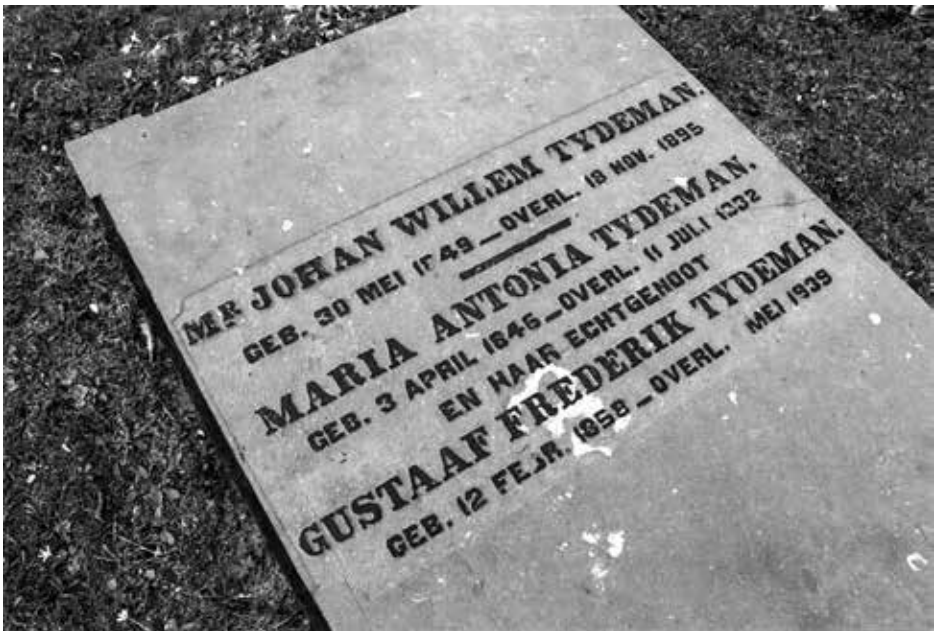 MR. JOHAN WILLEM TYDEMAN.
GEB. 30 MEI 1849_OVERL. 18 NOV. 1895
MARIA ANTONIA TYDEMAN.
GEB. 3 APRIL 1846_OVERL. 11 JULI 1932
EN HAAR ECHTGENOOT
GUSTAAF FREDERIK TYDEMAN.
GEB. 12 FEBR. 1858_OVERL. MEI 1939